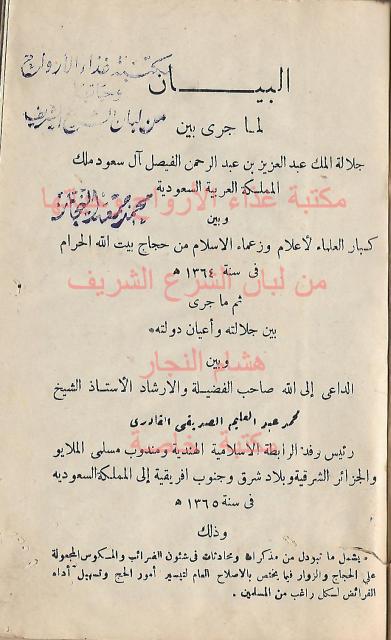 البيـــــان
لما جرى بين
جلالة الملك عبد العزيز بن عبد الرحمن الفيصل آل سعود ملك
المملكة العربية السعودية
وبين
كبار العلماء الأعلام وزعماء الاسلام من حجاج بيت الله الحرام
فى سنة ١٣٦٤ ه
ثم ما جرى
بين جلالته وأعيان دولته*
وبين
الداعى إلى الله صاحب الفضيلة والارشاد الأستاذ الشيخ
محمد عبد العليم الصديقى القادرى
رئيس وفد الرابطة الاسلامية الهندية ومندوب مسلمى الملايو
والجزائر الشرقية وبلاد شرق وجنوب افريقية إلى المملكة السعودية
فى سنة ١٣٦٥ ه
وذلك
* يشمل ما تبودل من مذكرات ومحادثات فى شئون الضرائب والمكوس المجعولة
على الحجاج والزوار فيما يختص بالاصلاح العام لتيسير أمور الحج وتسهيل أداء
الفرائض لسكل راغب من المسلمين .
مكتبة غذاء الأرواح
من لبان الشرع الشريف
مكتبة غذاء الأرواح
من لبان الشرع الشريف
هشام النجار
مكتبة خاصة